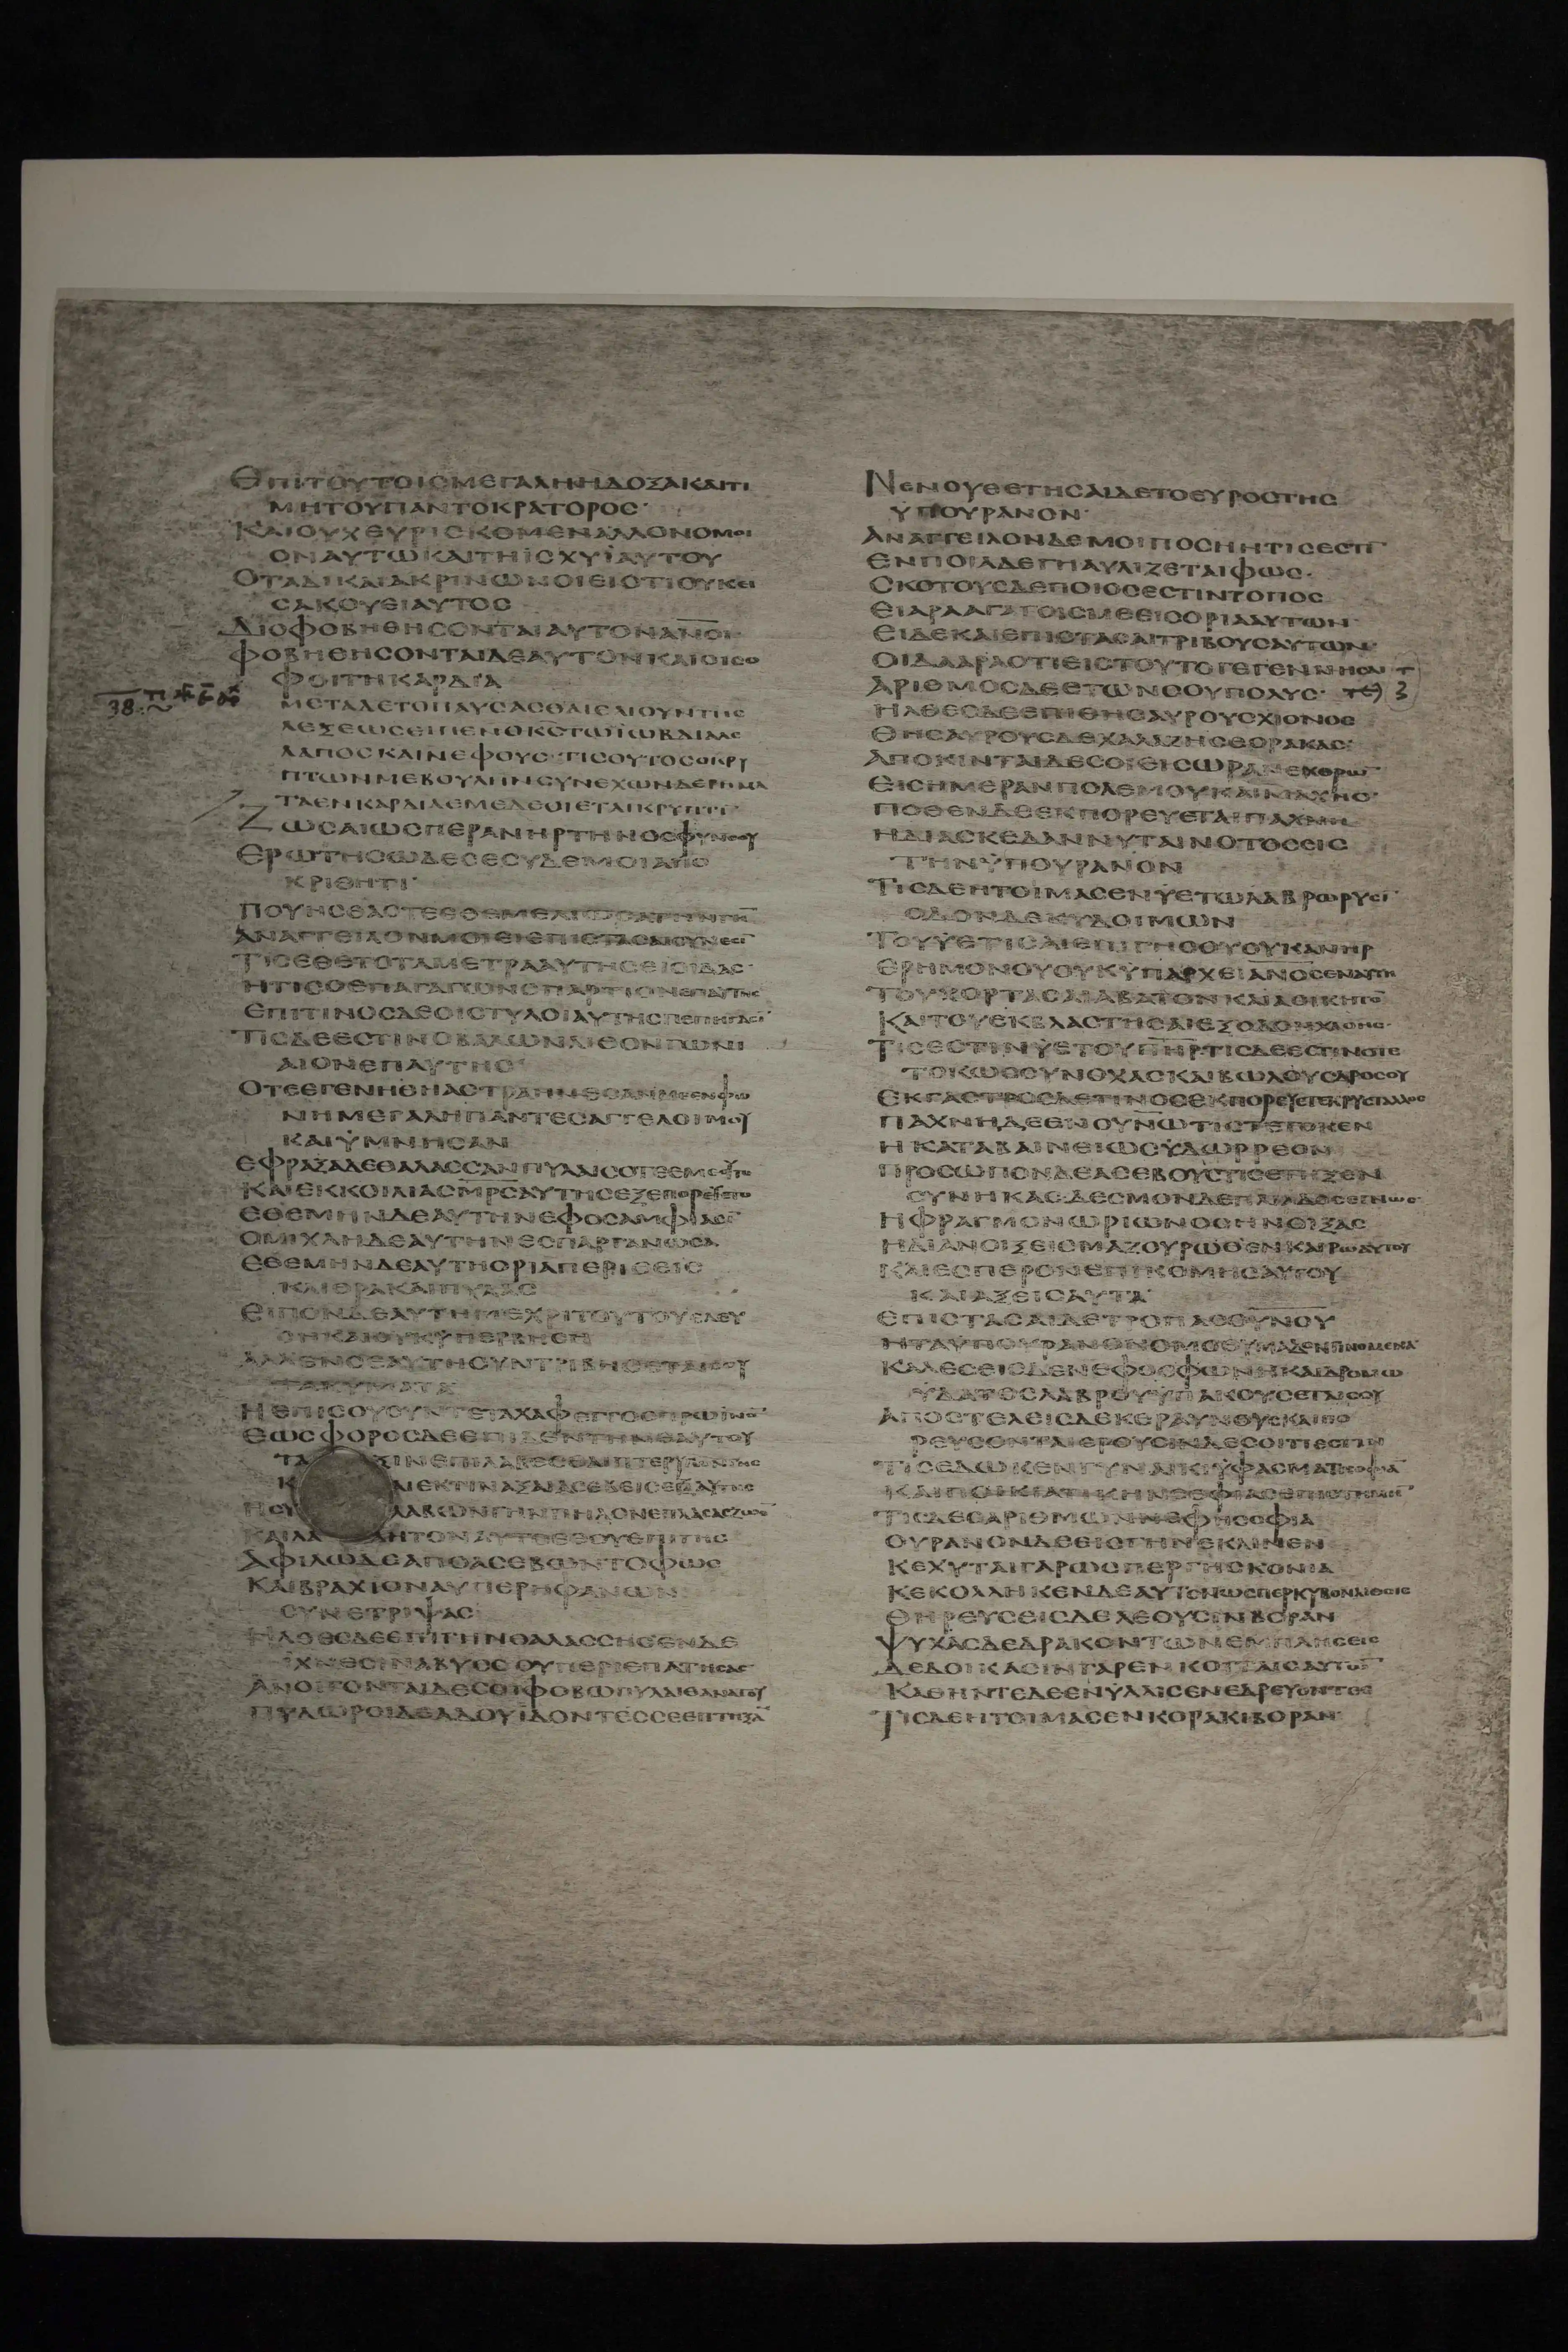 ΕΠΙΤΟΥΤΟΙΣΜΕΓΑΛΗΗΔΟΞΑΚΑΙΤΙ
ΜΗΤΟΥΠΑΝΤΟΚΡΑΤΟΡΟΣ·
ΚΑΙΟΥΧΕΥΡΙΣΚΟΜΕΝΑΛΛΟΝΟΜΟΙ
ΟΝΑΥΤΩΚΑΙΤΗΙΣΧΥΙΑΥΤΟΥ
ΟΤΑΔΙΚΑΙΑΚΡΙΝΩΝΟΙΕΙΟΤΙΟΥΚΕΙ
ΣΑΚΟΥΕΙΑΥΤΟΣ
ΔΙΟΦΟΒΗΘΗΣΟΝΤΑΙΑΥΤΟΝΑΝΟΙ·
ΦΟΒΗΘΗΣΟΝΤΑΙΔΕΑΥΤΟΝΚΑΙΟΙΣΟ
ΦΟΙΤΗΚΑΡΔΙΑ
38.
ΜΕΤΑΔΕΤΟΠΑΥΣΑΣΘΑΙΕΛΙΟΥΝΤΗΣ
ΛΕΞΕΩΣΕΙΠΕΝΟΚΣΤΩΙΩΒΔΙΑΛΑΙ
ΛΑΠΟΣΚΑΙΝΕΦΟΥΣ·ΤΙΣΟΥΤΟΣΟΚΡΥ
ΠΤΩΝΜΕΒΟΥΛΗΝΣΥΝΕΧΩΝΔΕΡΗΜΑ
ΤΑΕΝΚΑΡΔΙΑΕΜΕΔΕΟΙΕΤΑΙΚΡΥΠΤΙ
ΖΩΣΑΙΩΣΠΕΡΑΝΗΡΤΗΝΟΣΦΥΝΣΟΥ
ΕΡΩΤΗΣΩΔΕΣΕΣΥΔΕΜΟΙΑΠΟ
ΚΡΙΘΗΤΙ·
ΠΟΥΗΣΘΑΣΤΕΕΘΕΜΕΛΙΟΥΝΤΗΝΓΗΝ
ΑΝΑΓΓΕΙΛΟΝΜΟΙΕΙΕΠΙΣΤΑΣΑΙΣΥΝΕΣΙ
ΤΙΣΕΘΕΤΟΤΑΜΕΤΡΑΑΥΤΗΣΕΙΟΙΔΑΣ·
ΗΤΙΣΟΕΠΑΓΑΓΩΝΣΠΑΡΤΙΟΝΕΠΑΥΤΗΣ
ΕΠΙΤΙΝΟΣΔΕΟΙΣΤΥΛΟΙΑΥΤΗΣΠΕΠΗΓΑΣΙ
ΤΙΣΔΕΕΣΤΙΝΟΒΑΛΩΝΛΙΘΟΝΓΩΝΙ
ΑΙΟΝΕΠΑΥΤΗΣ·
ΟΤΕΕΓΕΝΗΘΗΑΣΤΡΑΗΝΕΣΑΝΜΕΕΝΦΩ
ΝΗΜΕΓΑΛΗΠΑΝΤΕΣΑΓΓΕΛΟΙΜΟΥ
ΚΑΙΥΜΝΗΣΑΝ
ΕΦΡΑΞΑΔΕΘΑΛΑΣΣΑΝΠΥΛΑΙΣΟΤΕΕΜΕΟΥΤΟ
ΚΑΙΕΚΚΟΙΛΙΑΣΜΡΣΑΥΤΗΣΕΞΕΠΟΡΕΥΕΤΟ
ΕΘΕΜΗΝΔΕΑΥΤΗΝΕΦΟΣΑΜΦΙΑΣΙ
ΟΜΙΧΛΗΔΕΑΥΤΗΝΕΣΠΑΡΓΑΝΩΣΑ
ΕΘΕΜΗΝΔΕΑΥΤΗΟΡΙΑΠΕΡΙΘΕΙΣ
ΚΛΙΘΡΑΚΑΙΠΥΛΑΣ
ΕΙΠΟΝΔΕΑΥΤΗΜΕΧΡΙΤΟΥΤΟΥΕΛΕΥ
ΣΗΚΑΙΟΥΚΥΠΕΡΒΗΣΗ
ΑΛΛΕΝΣΕΑΥΤΗΣΥΝΤΡΙΒΗΣΕΤΑΙΣΟΥ
ΤΑΚΥΜΑΤΑ
ΗΕΠΙΣΟΥΣΥΝΤΕΤΑΧΑΦΕΓΓΟΣΠΡΩΙΝΟ
ΕΩΣΦΟΡΟΣΔΕΕΠΙΔΕΝΤΗΝΕΑΥΤΟΥ
ΤΑ ΞΙΝΕΠΙΛΑΒΕΣΘΑΙΠΤΕΡΥΓΩΝΓΗΣ
Κ ΑΙΕΚΤΙΝΑΞΑΙΑΣΕΒΕΙΣΕΞΑΥΤΗΣ
ΗΣΥ ΛΑΒΩΝΓΗΝΠΗΛΟΝΕΠΛΑΣΑΣΖΩΟΝ
ΚΑΙΛΑ ΗΤΟΝΑΥΤΟΕΘΟΥΕΠΙΓΗΣ
ΑΦΙΛΩΔΕΑΠΟΑΣΕΒΩΝΤΟΦΩΣ
ΚΑΙΒΡΑΧΙΟΝΑΥΠΕΡΗΦΑΝΩΝ
ΣΥΝΕΤΡΙΨΑΣ
ΗΛΘΕΣΔΕΕΠΙΓΗΝΘΑΛΑΣΣΗΣΕΝΔΕ
ΙΧΝΕΣΙΝΑΒΥΣΣΟΥΠΕΡΙΕΠΑΤΗΣΑΣ·
ΑΝΟΙΓΟΝΤΑΙΔΕΣΟΙΦΟΒΩΠΥΛΑΙΘΑΝΑΤΟΥ
ΠΥΛΩΡΟΙΔΕΑΔΟΥΙΔΟΝΤΕΣΣΕΕΠΤΗΞΑ
ΝΕΝΟΥΘΕΤΗΣΑΙΔΕΤΟΕΥΡΟΣΤΗΣ
ΥΠΟΥΡΑΝΟΝ·
ΑΝΑΓΓΕΙΛΟΝΔΕΜΟΙΠΟΣΗΗΤΙΣΕΣΤΙ
ΕΝΠΟΙΑΔΕΓΗΑΥΛΙΖΕΤΑΙΦΩΣ·
ΣΚΟΤΟΥΣΔΕΠΟΙΟΣΕΣΤΙΝΤΟΠΟΣ
ΕΙΑΡΑΑΓΑΓΟΙΣΜΕΕΙΣΟΡΙΑΑΥΤΩΝ·
ΕΙΔΕΚΑΙΕΠΙΣΤΑΣΑΙΤΡΙΒΟΥΣΑΥΤΩΝ
ΟΙΔΑΑΡΑΟΤΙΕΙΣΤΟΥΤΟΓΕΓΕΝΝΗΣΑΙ
ΑΡΙΘΜΟΣΔΕΕΤΩΝΣΟΥΠΟΛΥΣ·
ΗΛΘΕΣΔΕΕΠΙΘΗΣΑΥΡΟΥΣΧΙΟΝΟΣ
ΘΗΣΑΥΡΟΥΣΔΕΧΑΛΑΖΗΣΕΟΡΑΚΑΣ·
ΑΠΟΚΙΝΤΑΙΔΕΣΟΙΕΙΣΩΡΑΝΕΧΘΡΩ
ΕΙΣΗΜΕΡΑΝΠΟΛΕΜΟΥΚΑΙΜΑΧΗΣ·
ΠΟΘΕΝΔΕΕΚΠΟΡΕΥΕΤΑΙΠΑΧΝΗ
ΗΔΙΑΣΚΕΔΑΝΝΥΤΑΙΝΟΤΟΣΕΙΣ
ΤΗΝΥΠΟΥΡΑΝΟΝ
ΤΙΣΔΕΗΤΟΙΜΑΣΕΝΥΕΤΩΛΑΒΡΩΡΥΣΙ
ΟΔΟΝΔΕΚΥΔΟΙΜΩΝ
ΤΟΥΥΕΤΙΣΑΙΕΠΙΓΗΣΟΥΟΥΚΑΝΗΡ
ΕΡΗΜΟΝΟΥΟΥΚΥΠΑΡΧΕΙΑΝΟΣΕΝΑΥΤΗ
ΤΟΥΧΟΡΤΑΣΑΙΑΒΑΤΟΝΚΑΙΑΟΙΚΗΤΟ
ΚΑΙΤΟΥΕΚΒΛΑΣΤΗΣΑΙΕΞΟΔΟΝΧΛΟΗΣ·
ΤΙΣΕΣΤΙΝΥΕΤΟΥΠΗΡ·ΤΙΣΔΕΕΣΤΙΝΟΤΕ
ΤΟΚΩΣΣΥΝΟΧΑΣΚΑΙΒΩΛΟΥΣΔΡΟΣΟΥ
ΕΚΓΑΣΤΡΟΣΔΕΤΙΝΟΣΕΚΠΟΡΕΥΕΤΕΚΡΥΣΤΑΛΛΟΣ
ΠΑΧΝΗΔΕΕΝΟΥΝΩΤΙΣΤΕΤΟΚΕΝ
ΗΚΑΤΑΒΑΙΝΕΙΩΣΥΔΩΡΡΕΟΝ
ΠΡΟΣΩΠΟΝΔΕΑΣΕΒΟΥΣΤΙΣΕΠΗΞΕΝ
ΣΥΝΗΚΑΣΔΕΣΜΟΝΔΕΠΛΙΑΔΟΣΕΓΝΩΣ·
ΗΦΡΑΓΜΟΝΩΡΙΩΝΟΣΗΝΟΙΞΑΣ
ΗΔΙΑΝΟΙΞΕΙΣΜΑΖΟΥΡΩΘΕΝΚΑΙΡΩΑΥΤΟΥ
ΚΑΙΕΣΠΕΡΟΝΕΠΙΚΟΜΗΣΑΥΤΟΥ
ΚΑΙΑΞΕΙΣΑΥΤΑ·
ΕΠΙΣΤΑΣΑΙΔΕΤΡΟΠΑΣΟΥΝΟΥ
ΗΤΑΥΠΟΥΡΑΝΟΝΟΜΟΘΥΜΑΔΕΝΓΙΝΟΜΕΝΑ
ΚΑΛΕΣΕΙΣΔΕΝΕΦΟΣΦΩΝΗΚΑΙΔΡΟΜΩ
ΥΔΑΤΟΣΛΑΒΡΟΥΥΠΑΚΟΥΣΕΤΑΙΣΟΥ
ΑΠΟΣΤΕΛΕΙΣΔΕΚΕΡΑΥΝΟΥΣΚΑΙΠΟ
ΡΕΥΣΟΝΤΑΙΕΡΟΥΣΙΝΔΕΣΟΙΤΙΕΣΤΙΝ
ΤΙΣΕΔΩΚΕΝΓΥΝΑΙΚΙΥΦΑΣΜΑΤΣΟΦΙΑ
ΚΑΙΠΟΙΚΙΛΤΙΚΗΝΕΠΙΣΤΗΜΗ
ΤΙΣΔΕΟΑΡΙΘΜΩΝΝΕΦΗΣΟΦΙΑ
ΟΥΡΑΝΟΝΔΕΕΙΣΓΗΝΕΚΛΙΝΕΝ
ΚΕΧΥΤΑΙΓΑΡΩΣΠΕΡΓΗΣΚΟΝΙΑ
ΚΕΚΟΛΛΗΚΕΝΔΕΑΥΤΟΝΩΣΠΕΡΚΥΒΟΝΛΙΘΟΙΣ
ΘΗΡΕΥΣΕΙΣΔΕΛΕΟΥΣΙΝΒΟΡΑΝ
ΨΥΧΑΣΔΕΔΡΑΚΟΝΤΩΝΕΜΠΛΗΣΕΙΣ
ΔΕΔΟΙΚΑΣΙΝΓΑΡΕΝΚΟΙΤΑΙΣΑΥΤΩ
ΚΑΘΗΝΤΕΔΕΕΝΥΛΑΙΣΕΝΕΔΡΕΥΟΝΤΕΣ
ΤΙΣΔΕΗΤΟΙΜΑΣΕΝΚΟΡΑΚΙΒΟΡΑΝ·